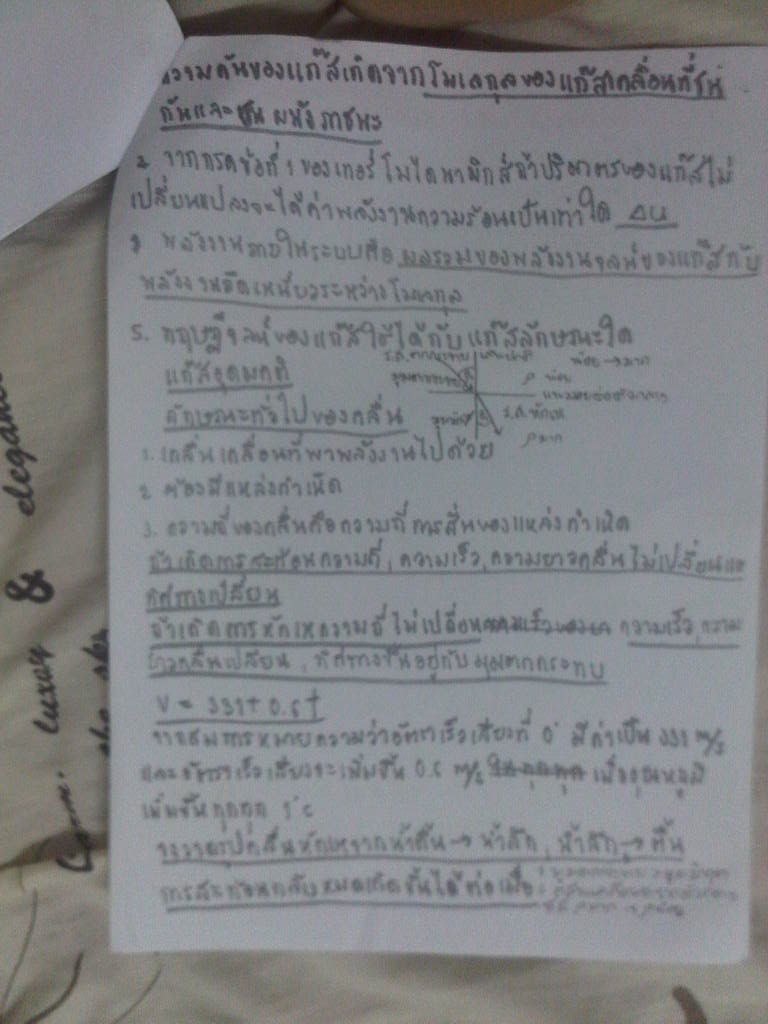 ความดันของแก๊สเกิดจากโมเลกุลของแก๊สเคลื่อนที่ชน
กันและชนผนังภาชนะ
2. จากกฎข้อที่ 1 ของเทอร์โมไดนามิกส์ถ้าปริมาตรของแก๊สไม่
เปลี่ยนแปลงจะได้ค่าพลังงานความร้อนเป็นเท่าใด ΔU
3 พลังงานภายในระบบคือผลรวมของพลังงานจลน์ของแก๊สกับ
พลังงานยึดเหนี่ยวระหว่างโมเลกุล
5. ทฤษฎีจลน์ของแก๊สใช้ได้กับแก๊สลักษณะใด
แก๊สอุดมคติ
น้อย → มาก
ρ น้อย
ร.ส.หักเห
ρ มาก
ลักษณะทั่วไปของคลื่น
1. คลื่นเคลื่อนที่พาพลังงานไปด้วย
2 ต้องมีแหล่งกำเนิด
3. ความถี่ของคลื่นคือความถี่การสั่นของแหล่งกำเนิด
ถ้าเกิดการสะท้อนความถี่, ความเร็ว, ความยาวคลื่นไม่เปลี่ยนแต่
ทิศทางเปลี่ยน
ถ้าเกิดการหักเหความถี่ไม่เปลี่ยน ความเร็ว, ความ
ยาวคลื่นเปลี่ยน, ทิศทางขึ้นอยู่กับมุมตกกระทบ
V = 331 + 0.6t
จากสมการหมายความว่าอัตราเร็วเสียงที่ 0° มีค่าเป็น 331 m/s
และอัตราเร็วเสียงจะเพิ่มขึ้น 0.6 m/s เมื่ออุณหภูมิ
เพิ่มขึ้นทุกๆ 1°c
จงวาดรูปคลื่นหักเหจากน้ำตื้น → น้ำลึก, น้ำลึก → ตื้น
การสะท้อนกลับหมดเกิดขึ้นได้ต่อเมื่อ